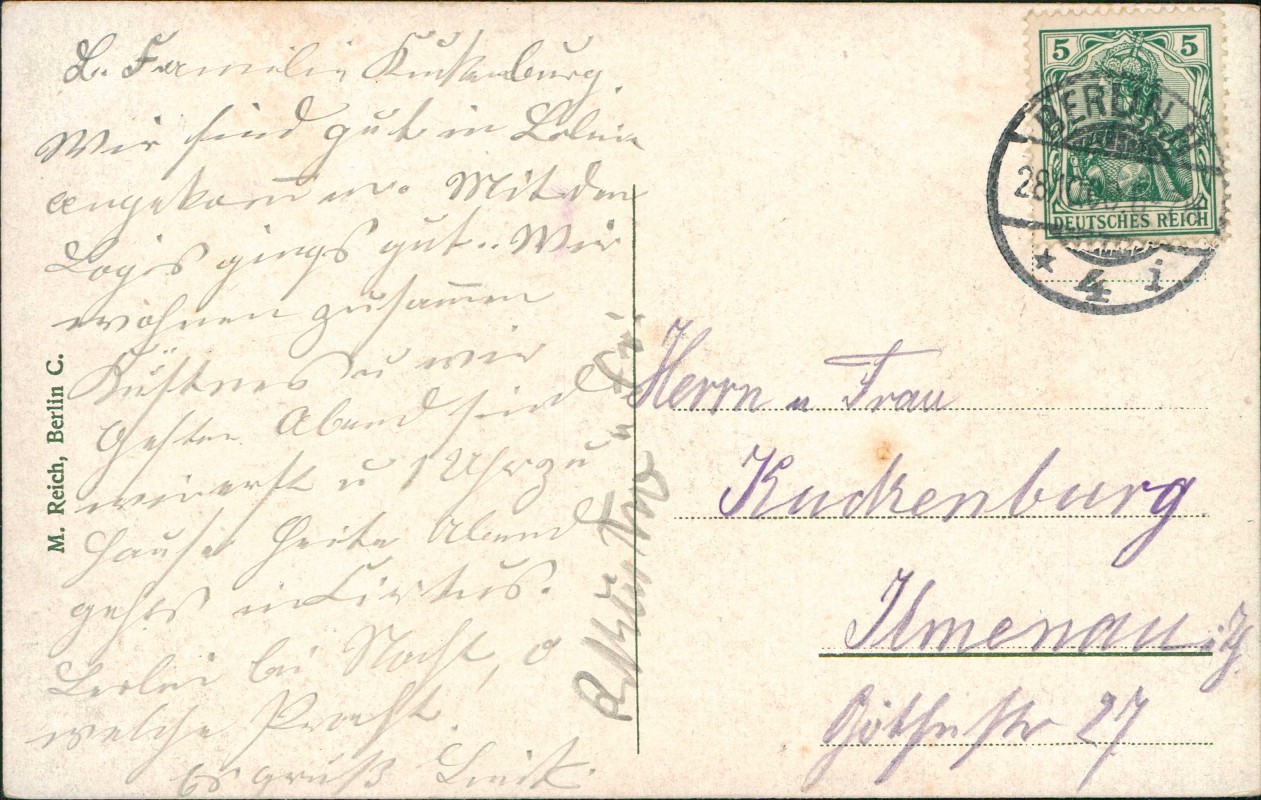 L. Familie Kuckenburg.
Wir sind gut in Berlin
angekom̄en. Mit den
Logis gings gut. Wir
wohnen zusam̄en
Küstners u wir
Abend sind
wir erst u 1 Uhr zu
Hause Heite Abend
gehts in Cirkus.
Berlin bei Nacht, o
welche Pracht.
Es grüßt
M. Reich, Berlin C.
5 5
DEUTSCHES REICH
BERLIN
28
* 4 i
Herrn u Frau
Kuckenburg
Ilmenau i/Th
Göthestr 27